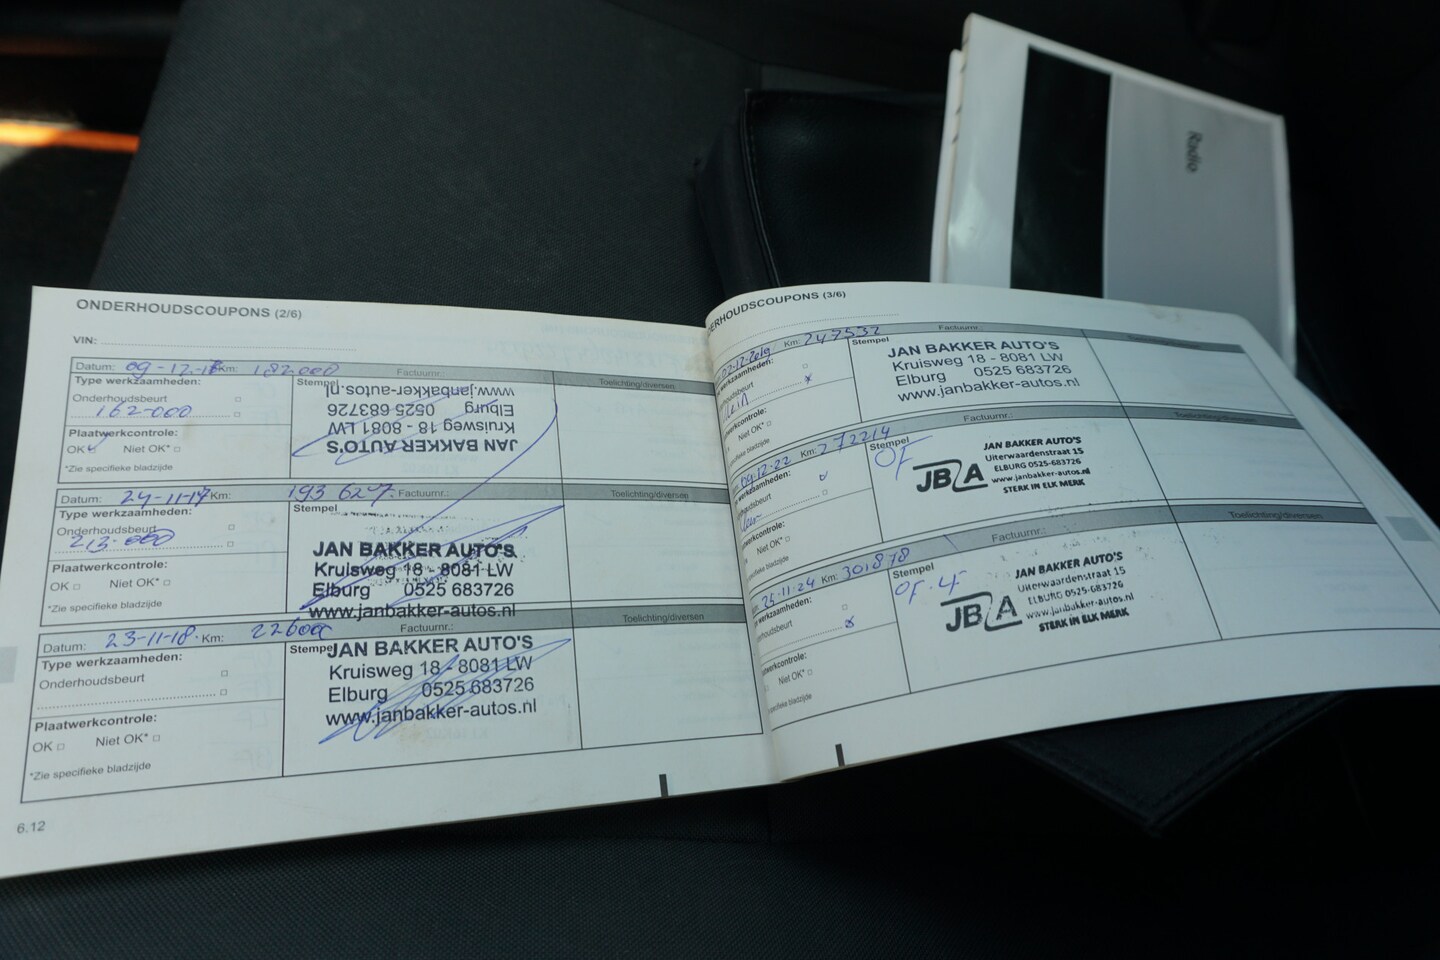 Radio
ONDERHOUDSCOUPONS (2/6)
VIN:
Datum: 09-12-16 Km: 182.000 Factuurnr.:
Type werkzaamheden: Stempel Toelichting/diversen
Onderhoudsbeurt
162-000
Plaatwerkcontrole:
OK Niet OK*
*Zie specifieke bladzijde
JAN BAKKER AUTO'S
Kruisweg 18 - 8081 LW
Elburg 0525 683726
www.janbakker-autos.nl
Datum: 24-11-17 Km: 193 627 Factuurnr.:
Type werkzaamheden: Stempel Toelichting/diversen
Onderhoudsbeurt
213-000
Plaatwerkcontrole:
OK Niet OK*
*Zie specifieke bladzijde
JAN BAKKER AUTO'S
Kruisweg 18 - 8081 LW
Elburg 0525 683726
www.janbakker-autos.nl
Datum: 23-11-18 Km: Factuurnr.:
Type werkzaamheden: Stempel Toelichting/diversen
Onderhoudsbeurt
Plaatwerkcontrole:
OK Niet OK*
*Zie specifieke bladzijde
JAN BAKKER AUTO'S
Kruisweg 18 - 8081 LW
Elburg 0525 683726
www.janbakker-autos.nl
6.12
DERHOUDSCOUPONS (3/6)
02-12-2019 Km: 247532 Factuurnr.:
werkzaamheden: Stempel
houdsbeurt
werkcontrole:
Niet OK*
specifieke bladzijde
JAN BAKKER AUTO'S
Kruisweg 18 - 8081 LW
Elburg 0525 683726
www.janbakker-autos.nl
09-12-22 Km: 272214 Factuurnr.:
werkzaamheden: Stempel Toelichting/diversen
houdsbeurt
werkcontrole:
Niet OK*
specifieke bladzijde
OF
JBA
JAN BAKKER AUTO'S
Uiterwaardenstraat 15
ELBURG 0525-683726
www.janbakker-autos.nl
STERK IN ELK MERK
25-11-24 Km: 301878 Factuurnr.:
werkzaamheden: Stempel Toelichting/diversen
houdsbeurt
aatwerkcontrole:
Niet OK*
specifieke bladzijde
OF.4F
JBA
JAN BAKKER AUTO'S
Uiterwaardenstraat 15
ELBURG 0525-683726
www.janbakker-autos.nl
STERK IN ELK MERK